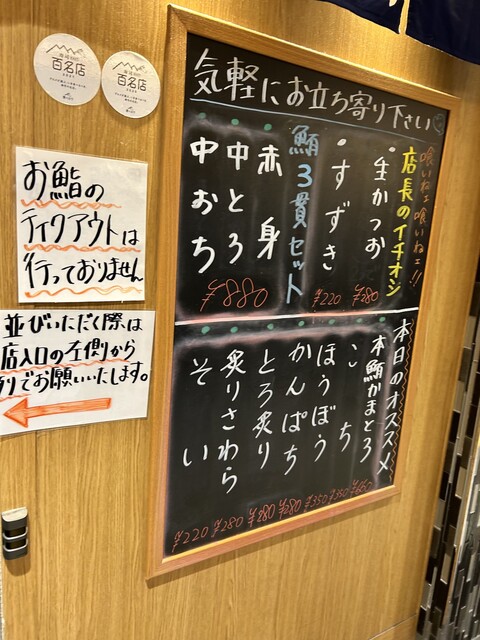 百名店
百名店
気軽にお立ち寄り下さい
喰いねェ喰いねェ!!
店長のイチオシ
・生かつお
¥280
・すずき
¥220
鮪3貫セット
赤身
中とろ
中おち
¥880
本日のオススメ
本鮪かまとろ
こち
¥350
ほうぼう
¥350
かんぱち
¥280
とろ炙り
¥280
炙りさわら
¥280
そい
¥220
お鮨の
テイクアウトは
行っておりません
並びいただく際は
店入口の左側から
りでお願いいたします。